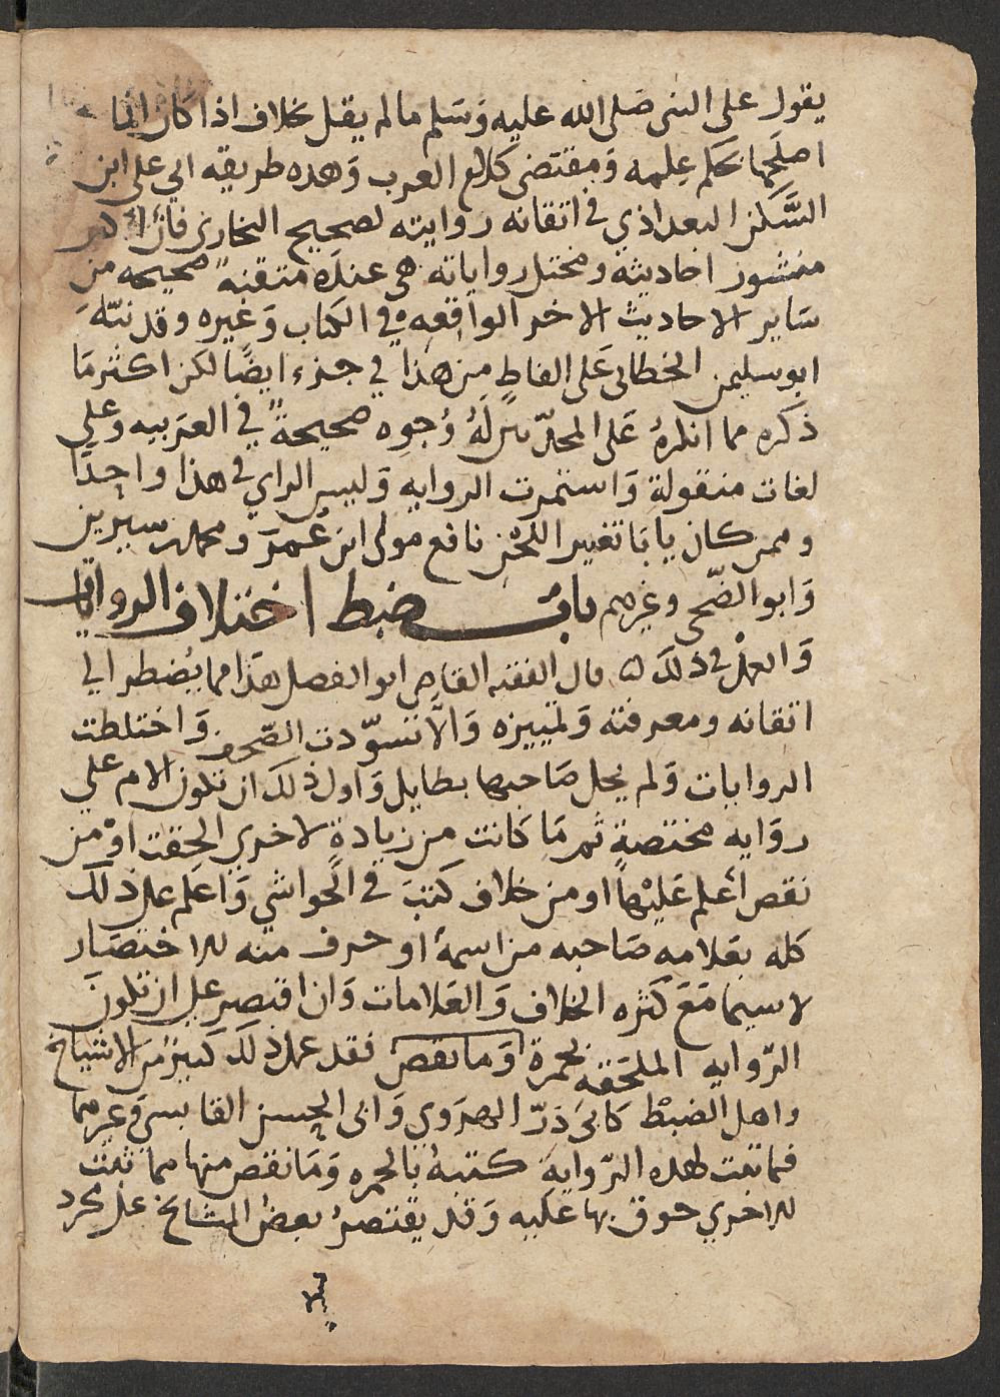 يقول على النبى صَلى الله عليه وَسَلم مالم يقل بخلاف اذا كان انما
اصلحها بحكم عِلمه وَمقتضى كلام العرب وَهذه طريقه ابي على ابن
السَّكن البغداذي في اتقانه روايته لصحيح البخارى فان اكثر
متشور احاديثه ومختل رواياته هى عنده متقنه صحيحه من
سَاير الاحاديث الاخر الواقعه في الكتاب وَغيره وقد نبّه
ابو سليمن الخطابى عَلى الفاطٍ من هذا في جزء ايضًا لكن اكثر مَا
ذكره مما انكرهُ عَلى المحدّثين لَهُ وُجوه صحيحةٌ في العَربيه وَعلى
لغات منقولة وَاستمرت الروايه وَليس الراي في هذا واحِدًا
وممن كان يابَا تغيير اللحْن نافع مولى ابن عُمرَ ومحمد بن سيرين
وَابو الضّحى وغيرهم باب ضبط اختلاف الروايات
وَالعملْ في ذلكَ ٥ قال الفقيه القاضى ابو الفضل هَذا مما يُضطر الي
اتقانه ومعرفته وَتمييزه وَالّا تسوّدت الصّحف وَاختلطت
الروايات وَلم يحل صَاحبها بطايل وَاول ذلكَ ان تكون الام علي
روَايه مختصةٍ ثم مَا كانت من زيادةٍ لاخري الحِقت اوْ من
نقصٍ أعْلم عَليْها او من خلاف كتبَ في الحواشي وَاعلم على ذلك
كله بعَلامه صَاحبه من اسمهْ او حرف منه للاختصَار
لاسيما مَعَ كثره الخلاف وَالعَلامات وَان اقتصر على ان تكونَ
الرّوايه الملحَقه بحمرة وَما نقصَ فقد عمل ذلكَ كثير من الاشياخ
واهل الضبْط كابى ذَرّ الهروي وَابى الحسن القابسي وَغيرهما
فما ثبت لهذه الرّوايةِ كتبهُ بالحمره وَمَا نقصَ منها مما ثبت
للاخري حوق بها عليه وَقد يقتصرُ بعضُ المشايخ على مجرد